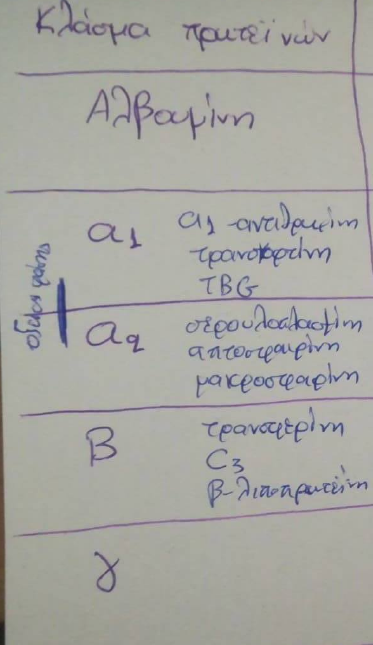 Κλάσμα πρωτεϊνών
Αλβουμίνη
α1
α1-αντιθρυψίνη
τρανσκορτίνη
TBG
οξείας φάσης
α2
σερουλοπλασμίνη
απτοσφαιρίνη
μακροσφαιρίνη
β
τρανσφερίνη
C3
β-λιποπρωτεΐνη
γ